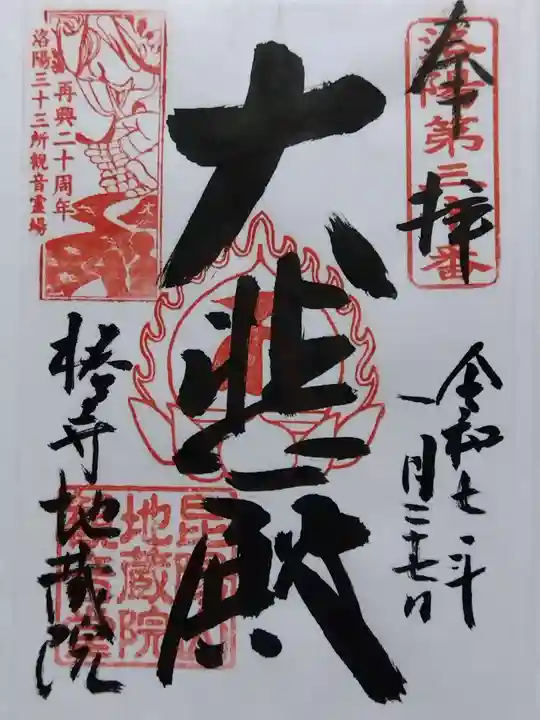 奉拝
洛陽第三十番
令和七年
一月二十七日
大悲殿
再興二十周年
洛陽三十三所観音霊場
椿寺
地蔵院
地蔵院